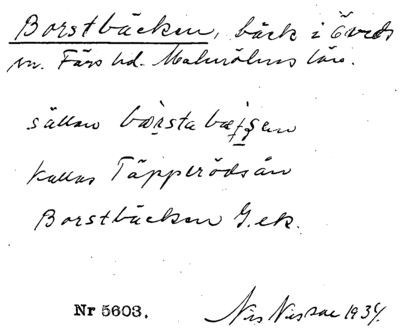 Borstbäcken, bäck i Öveds
sn. Färs hd. Malmöhus län.
sällan
kallas Täpperödsån
Borstbäcken G.ek.
Nr 5603. Nils Nilsson 1934.